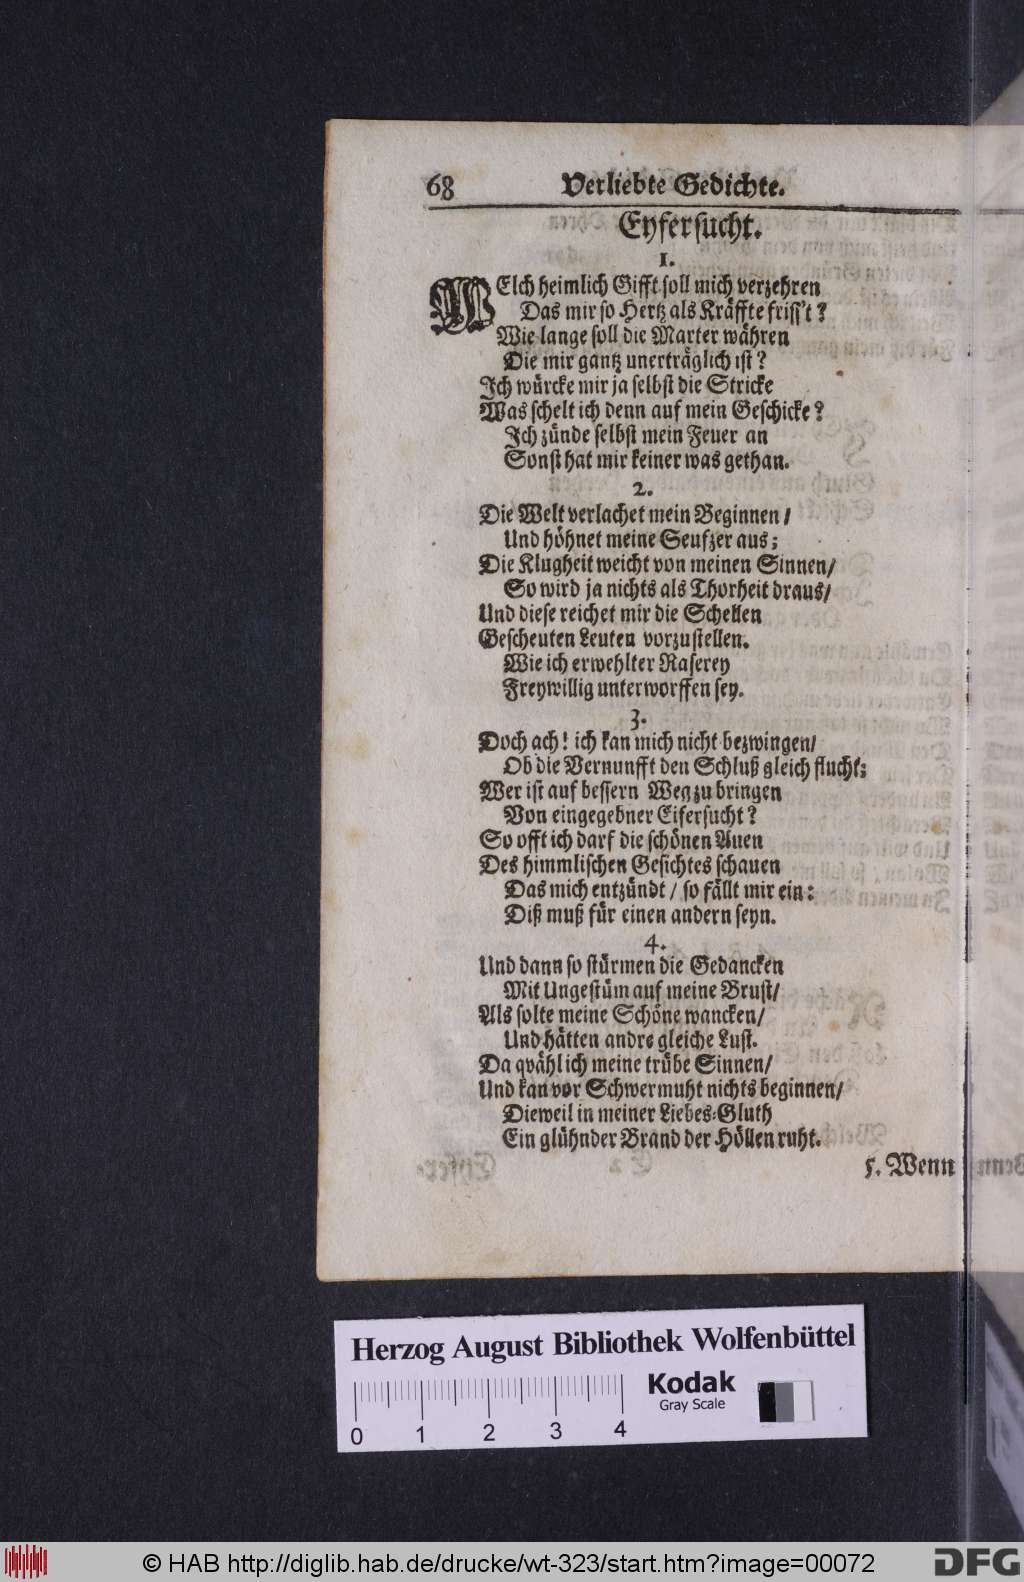 68 Verliebte Gedichte.
Eyfersucht.
1.
WElch heimlich Gifft soll mich verzehren
Das mir so Hertz als Kräffte friss't?
Wie lange soll die Marter währen
Die mir gantz unerträglich ist?
Ich würcke mir ja selbst die Stricke
Was schelt ich denn auf mein Geschicke?
Ich zünde selbst mein Feuer an
Sonst hat mir keiner was gethan.
2.
Die Welt verlachet mein Beginnen/
Und höhnet meine Seufzer aus;
Die Klugheit weicht von meinen Sinnen/
So wird ja nichts als Thorheit draus/
Und diese reichet mir die Schellen
Gescheuten Leuten vorzustellen.
Wie ich erwehlter Raserey
Freywillig unterworffen sey.
3.
Doch ach! ich kan mich nicht bezwingen/
Ob die Vernunfft den Schluß gleich flucht;
Wer ist auf bessern Weg zu bringen
Von eingegebner Eifersucht?
So offt ich darf die schönen Auen
Des himmlischen Gesichtes schauen
Das mich entzündt/ so fällt mir ein:
Diß muß für einen andern seyn.
4.
Und dann so stürmen die Gedancken
Mit Ungestüm auf meine Brust/
Als solte meine Schöne wancken/
Und hätten andre gleiche Lust.
Da qvähl ich meine trübe Sinnen/
Und kan vor Schwermuht nichts beginnen/
Dieweil in meiner Liebes-Gluth
Ein glühnder Brand der Höllen ruht.
5. Wenn
Herzog August Bibliothek Wolfenbüttel
Kodak
Gray Scale
0 1 2 3 4
© HAB http://diglib.hab.de/drucke/wt-323/start.htm?image=00072
DFG